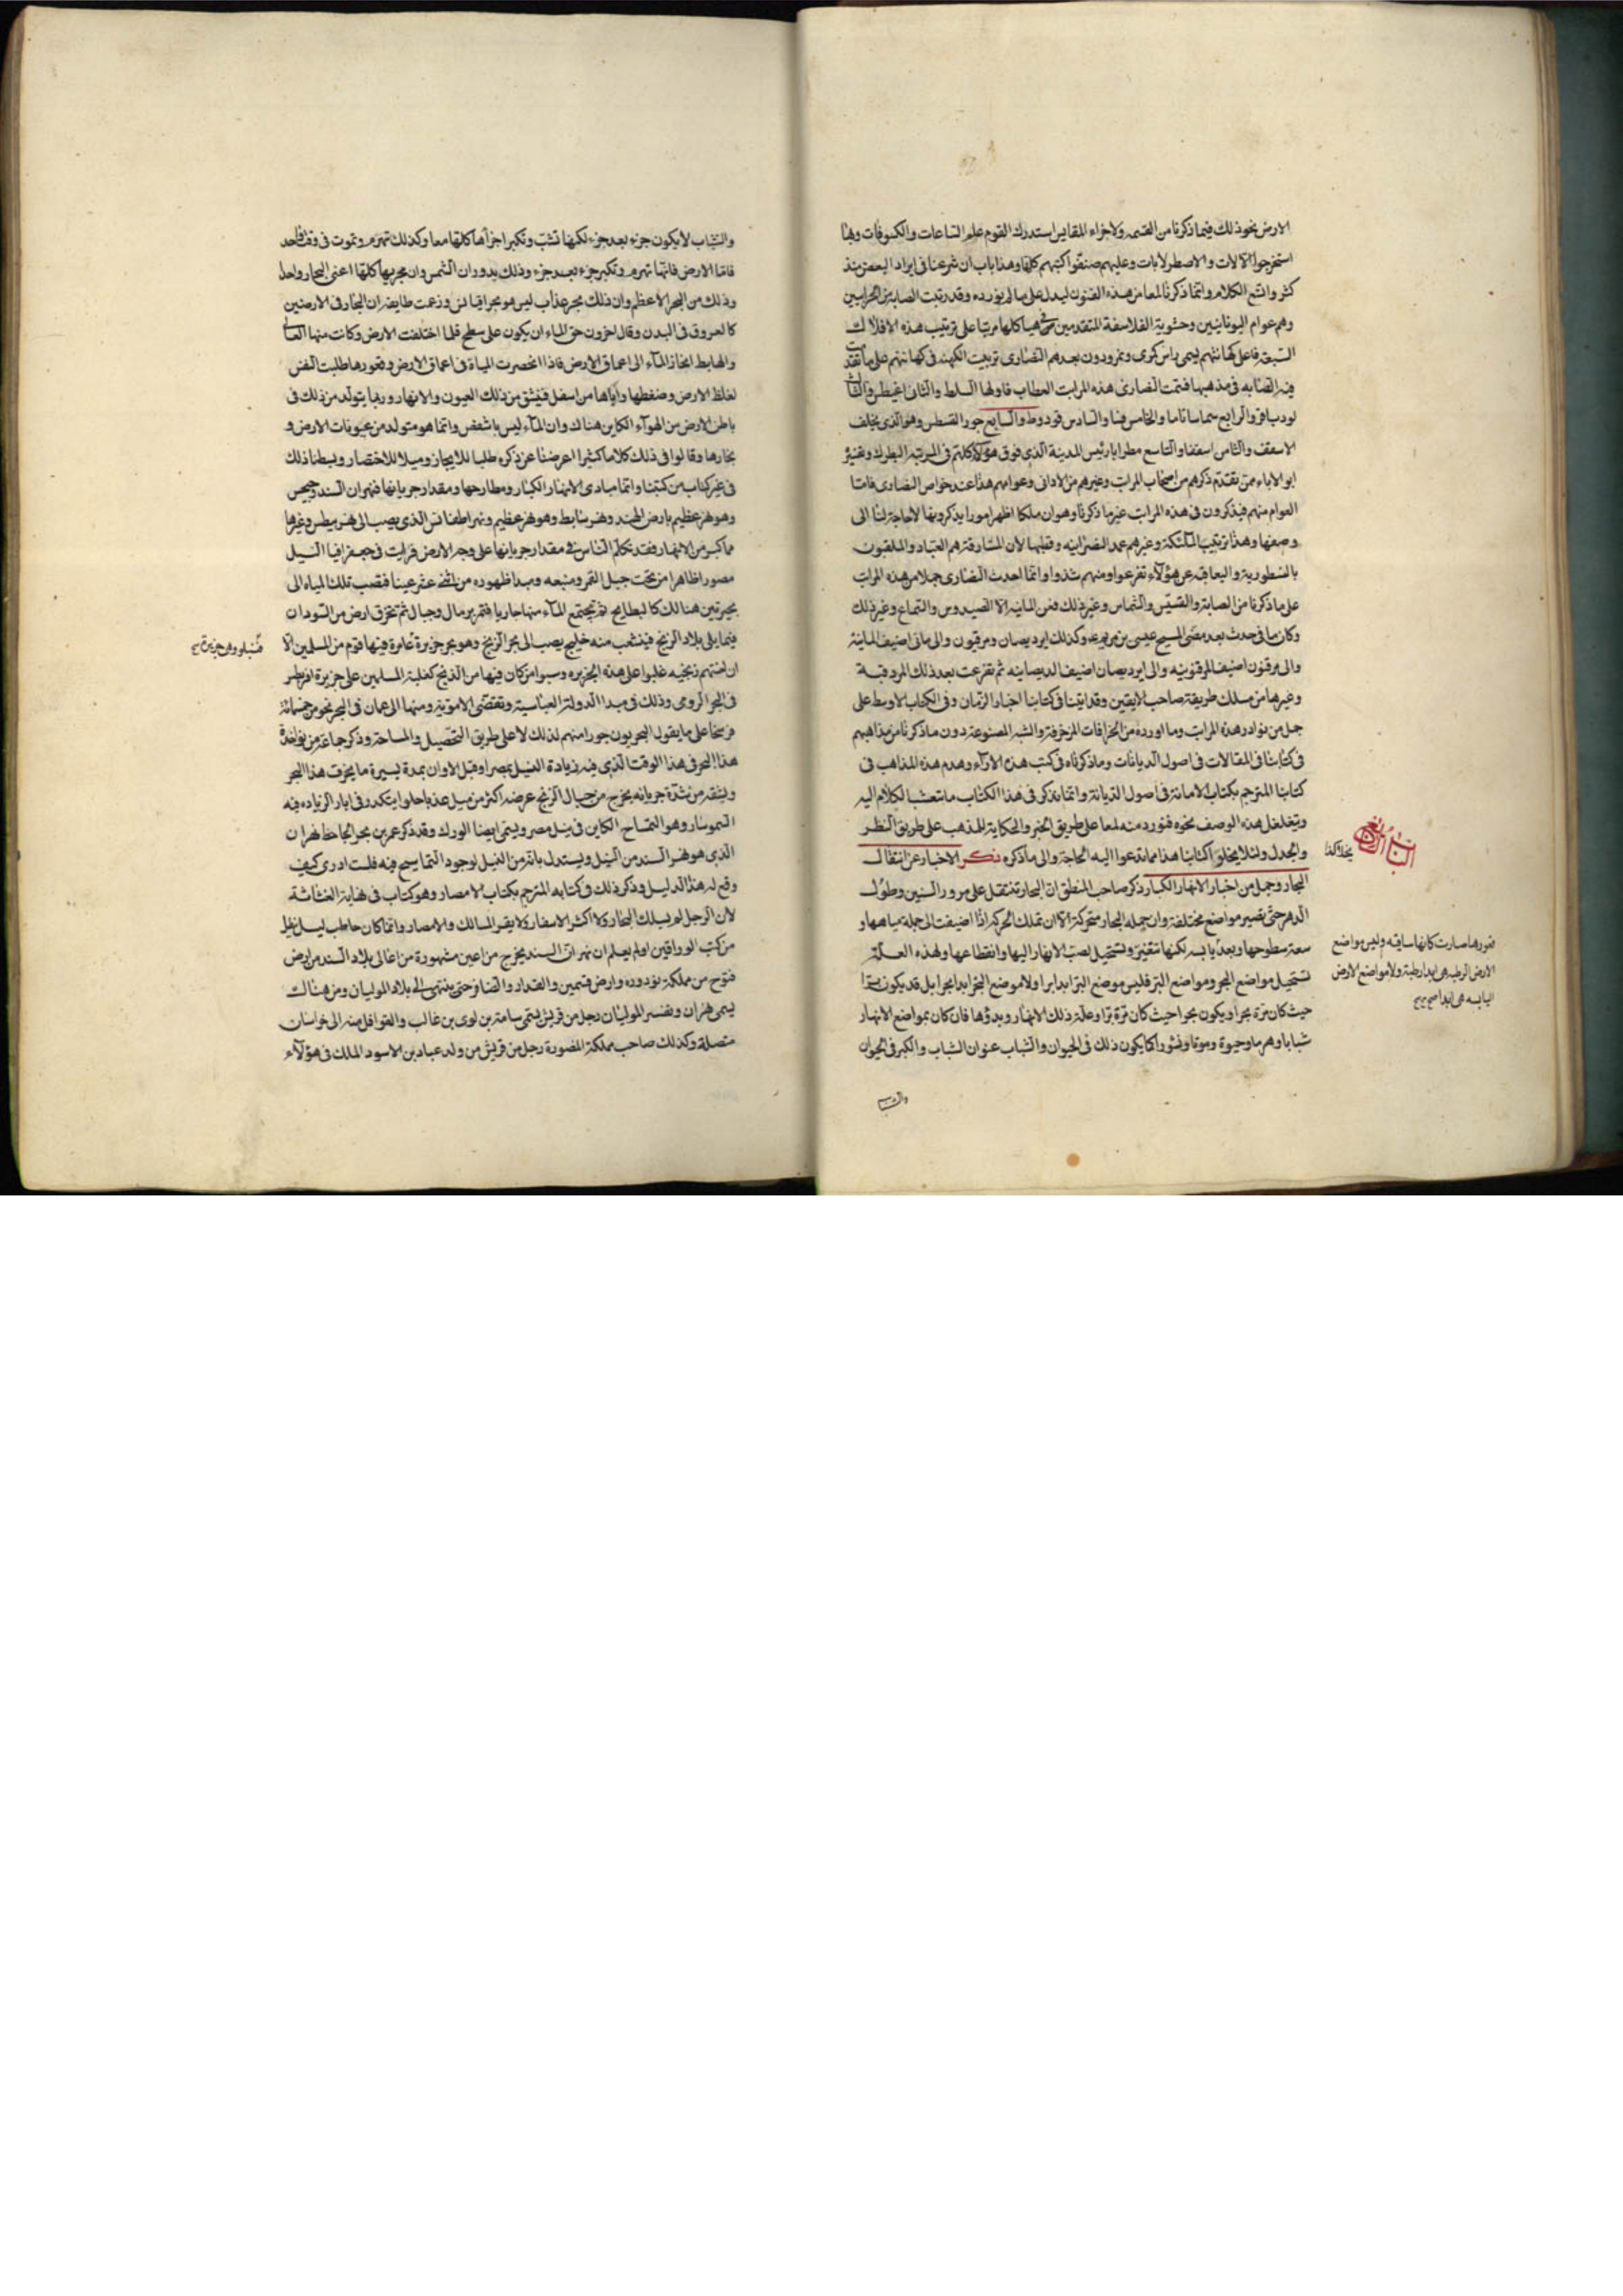 الارض نحو ذلك فيما ذكرنا من القسمه ولاجزاء المقاييس استدرك القوم علم الساعات والكسوفات وبها
استخرجوا الآلات والاصطرلابات وعليهم صنفوا كتبهم كلها وهذا باب ان شرعنا فى ايراد البعض منه
كثر واتسع الكلام وانما ذكرنا لمعا من هذه الفنون ليدل على ما لم نورده وقد رتبت الصابة من الحرانيين
وهم عوام اليونانيين وحشوية الفلاسفة المتقدمين هياكلها مرتبا على ترتيب هذه الافلاك
السبعة فاعلى كهانتهم يسمى راس كمرى ونمرودون بعدهم النصارى ترتيب الكهنة فى كهانتهم على ما تقدمت
فيه الصابه فى مذهبها فسمت النصارى هذه المراتب العطاب فاولها السلط والثانى اغنسطس والثالث
يودياقن والرابع سماساناما والخامس قسا والسادس قودوط والسابع حور القسطس وهو الذى يخلف
الاسقف والثامن اسقفا والتاسع مطرانا رئيس المدينة الذى فوق هؤلاء كلهم فى المرتبة البطرك وتفسيره
ابو الاباء ممن تقدم ذكرهم من اصحاب المراتب وغيرهم من الادانى وعوامهم هذا عند خواص النصارى فاما
العوام منهم فيذكرون فى هذه المراتب غير ما ذكرنا وهو ان ملكا اظهر امورا يذكرونها لاحاجة لنا الى
وصفها وهذا ترتيب الملكية وغيرهم عمد النصرانيه وقطبها لان المشارقة هم العباد والملقبون
بالنسطورية واليعاقبة عن هؤلاء تفرعوا ومنهم شذوا وانما احدث النصارى جملا من هذه المراتب
على ما ذكرنا من الصابة والقسيس والشماس وغير ذلك وعن المانيه الا الصيدوس والسماع وغير ذلك
وكان مانى حدث بعد مضى المسيح عيسى بن مريم وكذلك ابن ديصان ومرقيون والى مانى اضيف المانية
والى مرقيون اضيف المرقونيه والى ابن ديصان اضيف الديصانيه ثم تفرعت بعد ذلك المزدقية
وغيرها من سلك طريقة صاحب الاثنين وقد اتينا فى كتابنا اخبار الزمان وفى الكتاب الاوسط على
جمل من نوادر هذه المراتب وما اوردوه من الخرافات المزخرفة والشبه المصنوعة دون ما ذكرنا من مذاهبهم
فى كتابنا فى المقالات فى اصول الديانات وما ذكرناه فى كتب هذه الاراء وهدم هذه المذاهب فى
كتابنا المترجم بكتاب الامانة فى اصول الديانة وانما نذكر فى هذا الكتاب ما تشعب الكلام اليه
ويتغلغل هذه الوصف نحوه فنورد منه لمعا على طريق الخبر والحكاية للمذهب على طريق النظر
والجدل ولئلا يخلو كتابنا هذا مما تدعوا اليه الحاجة والى ما ذكره ذكر الاخبار عن انتقال
البحار وجمل من اخبار الانهار الكبار ذكر صاحب المنطق ان البحار تنتقل على مرور السنين وطول
الدهر حتى تصير مواضع مختلفة وان جمله البحار متحركة الا ان تلك الحركه اذا اضيفت الى جملة مياهها و
سعة سطوحها وبعد
تستحيل مواضع البحر ومواضع البر فليس موضع البر ابدا برا ولا موضع البحر ابدا بحرا بل قد يكون برا
حيث كان مرة بحرا ويكون بحرا حيث كان مرة برا وعلة ذلك الانهار وبدؤها فان كان بمواضع الانهار
شبابا وهرما وحيوة وموتا ونشوءا كما يكون ذلك فى الحيوان والنبات عنوان الشباب والكبر فى الحيوان
والشباب
قعورها صارت كانها ساكنه وليس مواضع
الارض الرطبه هى ابدا رطبة ولا مواضع الارض
اليابسه هى ابدا صح
والشباب لا يكون جزء بعد جزء لكنها تشب وتكبر اجزاها كلها معا وكذلك تهرم وتموت فى وقت واحد
فاما الارض فانها تهرم وتكبر جزء بعد جزء وذلك بدوران الشمس وان مجريها كلها اعنى البحار واحدا
وذلك من البحر الاعظم وان ذلك بحر عذاب ليس هو بحر اقيانس وزعمت طايفة ان البحار فى الارضين
كالعروق فى البدن وقال اخرون حق الماء ان يكون على سطح فلما اختلفت الارض وكانت منها العالى
والهابط انحاز الماء الى اعماق الارض فاذا انحصرت المياة فى اعماق الارض وقعورها طلبت النفس
لغلظ الارض وضغطها واياها من اسفل فتنبثق من ذلك العيون والانهار وربما يتولد من ذلك فى
باطن الارض من الهواء الكاين هناك وان الماء ليس باسطقس وانما هو متولد من عفونات الارض و
بخارها وقالوا فى ذلك كلاما كثيرا اعرضنا عن ذكره طلبا للايجاز وميلا للاختصار وبسطنا ذلك
فى غير كتاب من كتبنا وانما مبادى الانهار الكبار ومطارحها ومقدار جريانها فنهران السند وجيحس
وهو نهر عظيم بارض الهند ونهر سابط وهو نهر عظيم ونهر اطفانس الذى يصب الى نهر بيطس وغيرها
مما كبر من الانهار فقد تكلم الناس فى مقدار جريانها على وجه الارض فرايت فى جعفرافيا النيل
مصورا ظاهرا من تحت جبل القمر ومنبعه ومبدا ظهوره من اثنى عشر عينا فتصب تلك المياه الى
بحيرتين هنالك كالبطايح ثم تجتمع الماء منها جاريا فتمر برمال وجبال ثم تخرق ارض من السودان
فيما يلى بلاد الزنج فيتشعب منه خليج يصب الى بحر الزنج وهو بحر جزيرة عامرة فيها قوم من المسلمين الا
ان لغتهم زنجيه غلبوا على هذه الجزيره وسبوا من كان فيها من الذنج كغلبة المسلمين على جزيرة اقريطس
فى البحر الرومى وذلك فى مبدا الدولة العباسية وتقضى الاموية ومنها الى عمان فى البحر نحو من خمسمائة
فرسخا على ما يقول البحريون حورا منهم لذلك لا على طريق التحصيل والمساحة وذكر جماعة من نواخذة
هذا البحر فى هذا الوقت الذى فيه زيادة النيل بمصر او قبل الاوان بمدة يسيرة ما يخرق هذا البحر
ويشقه من شدة جريانه يخرج من جبال الزنج عرضه اكثر من ميل عذبا حلوا يتكدر فى ابان الزياده فيه
السوسار وهو التمساح الكاين فى نيل مصر ويسمى ايضا الورك وقد ذكر عمر بن بحر الجاحظ نهران
الذى هو نهر السند من النيل ويستدل بانه من النيل لوجود التماسيح فيه فلست ادرى كيف
وقع له هذا الدليل وذكر ذلك فى كتابه المترجم بكتاب الامصار وهو كتاب فى نهاية الغثاثة
لان الرجل لم يسلك البحار ولا اكثر الاسفار ولا يقر المسالك والامصار وانما كان حاطب ليل ينقل
من كتب الوراقين اولم يعلم ان نهران السند يخرج من اعين مشهورة من اعالى بلاد السند من ارض
قنوج من مملكة بؤوره وارض قشمير والقندهار والطافن حتى ينتهى الى بلاد الموليان ومن هناك
يسمى مهران وتفسير الموليان رجل من قريش يسمى سامة بن لوى بن غالب والقوافل منه الى خراسان
متصلة وكذلك صاحب مملكة المنصورة رجل من قريش من ولد عباد بن الاسود الملك فى هؤلاء